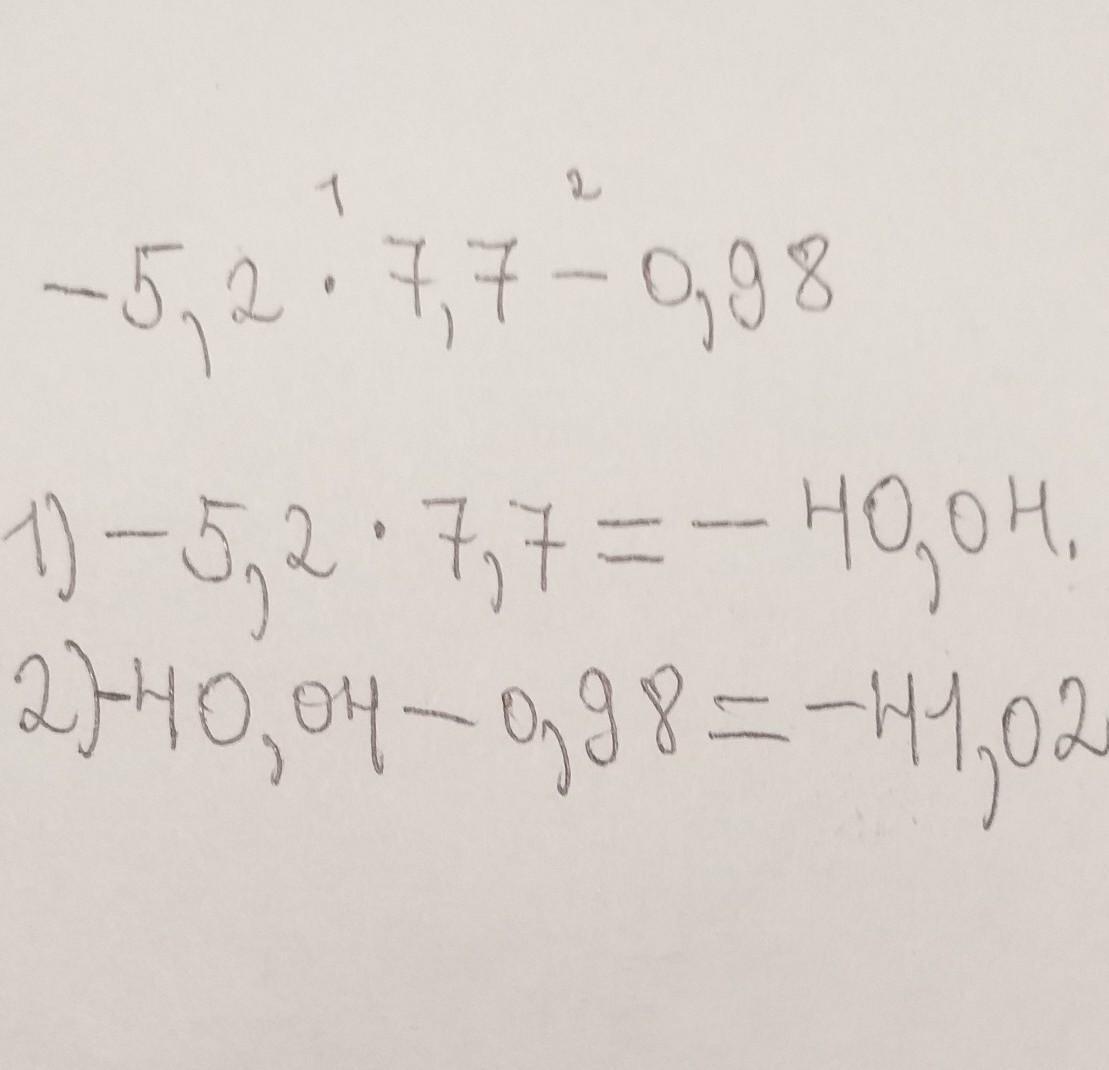 1 2
-5,2 · 7,7 - 0,98
1) -5,2 · 7,7 = - 40,04.
2) -40,04 - 0,98 = -41,02